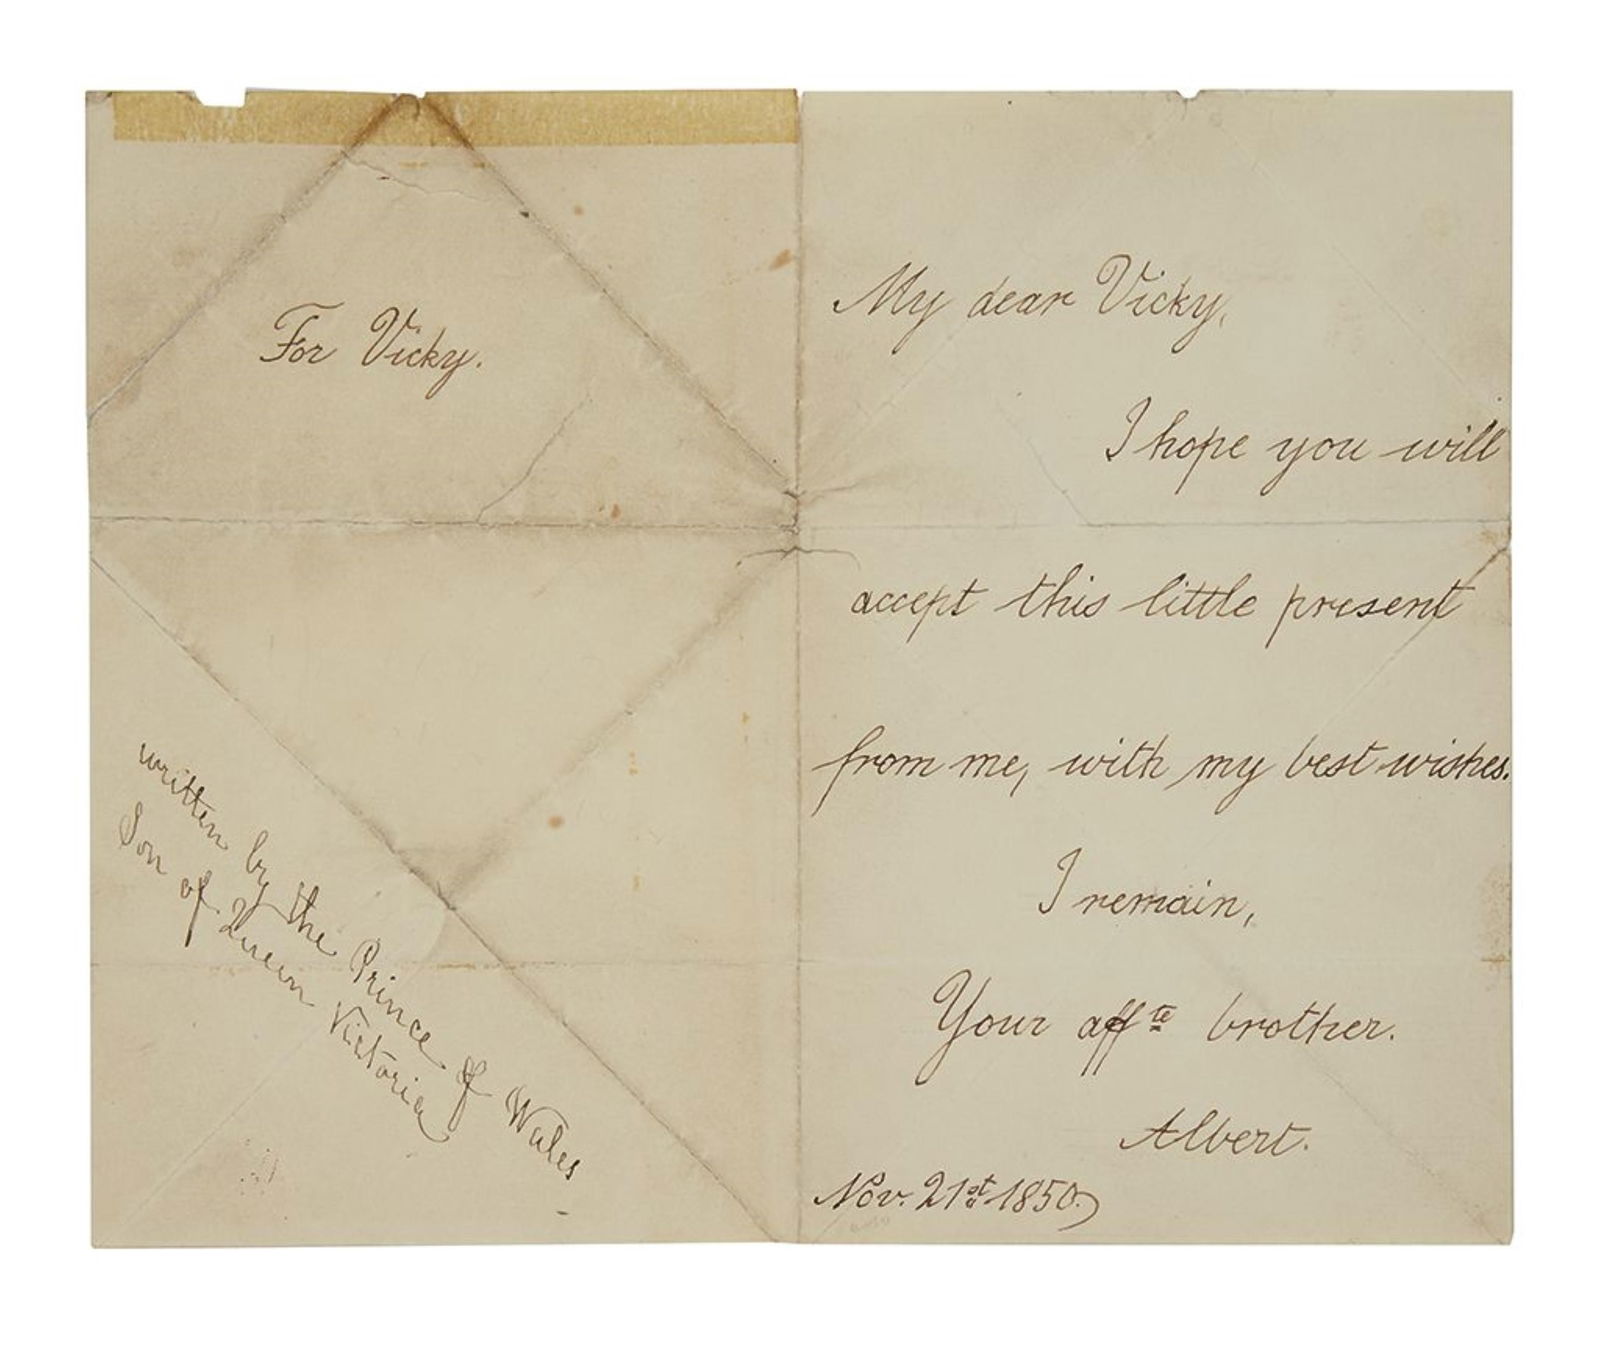 For Vicky.
written by the Prince of Wales
Son of Queen Victoria
My dear Vicky,
I hope you will
accept this little present
from me, with my best wishes.
I remain,
Your affte brother.
Albert.
Nov. 21st 1850.